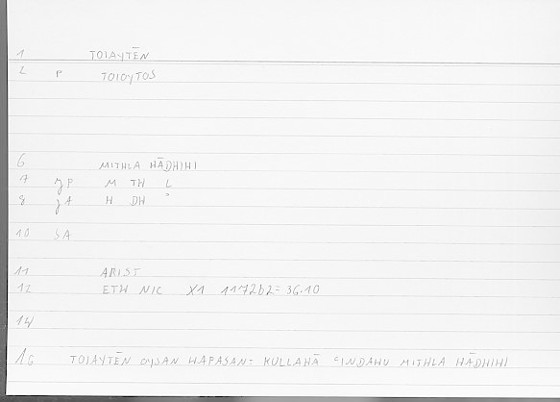 1 TOIAYTĒN
2 P TOIOYTOS
6 MITHLA HĀDHIHI
7 P M TH L
8 A H DH °
10 SA
11 ARIST
12 ETH NIC X1 1172b2= 36.10
14
16 TOIAYTĒN OYSAN WAFASAN= KULLAHĀ ʿINDAHU MITHLA HĀDHIHI